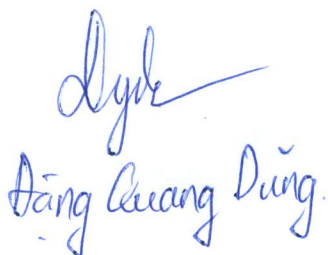 Đặng Quang Dũng.